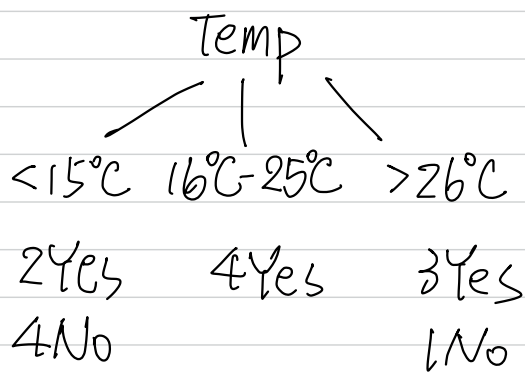 Temp
<15°C 16°C-25°C >26°C
2Yes 4Yes 3Yes
4No 1No